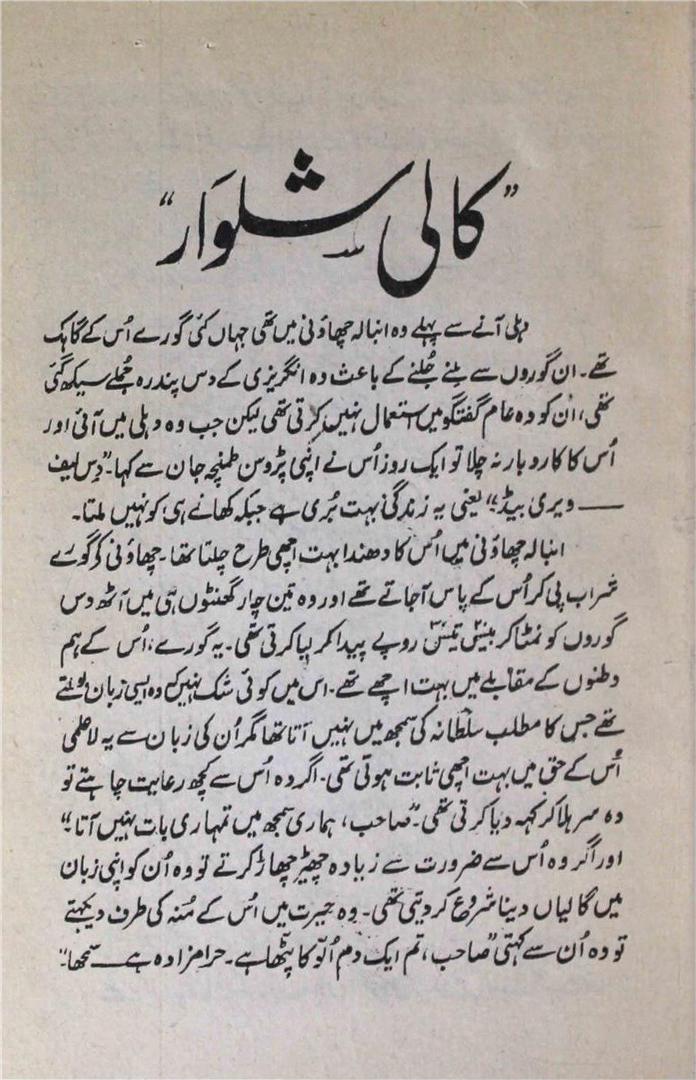 ”کالی شلوار“
دہلی آنے سے پہلے وہ انبالہ چھاؤنی میں تھی جہاں کئی گورے اُس کے گاہک
تھے۔ ان گوروں سے ملنے جُلنے کے باعث وہ انگریزی کے دس پندرہ جُملے سیکھ گئی
تھی، اُن کو وہ عام گفتگو میں استعمال نہیں کرتی تھی لیکن جب وہ دہلی میں آئی اور
اُس کا کاروبار نہ چلا تو ایک روز اُس نے اپنی پڑوسن طمنچہ جان سے کہا۔ ”دِس لیف
—— ویری بیڈ“ یعنی یہ زندگی بہت بُری ہے جبکہ کھانے ہی کو نہیں ملتا۔
انبالہ چھاؤنی میں اُس کا دھندا بہت اچھی طرح چلتا تھا۔ چھاؤنی کے گورے
شراب پی کر اُس کے پاس آجاتے تھے اور وہ تین چار گھنٹوں ہی میں آٹھ دس
گوروں کو نمٹا کر بیس تیس روپے پیدا کر لیا کرتی تھی۔ یہ گورے، اُس کے ہم
وطنوں کے مقابلے میں بہت اچھے تھے۔ اس میں کوئی شک نہیں کہ وہ ایسی زبان بولتے
تھے جس کا مطلب سلطانہ کی سمجھ میں نہیں آتا تھا مگر اُن کی زبان سے یہ لاعلمی
اُس کے حق میں بہت اچھی ثابت ہوتی تھی۔ اگر وہ اُس سے کچھ رعایت چاہتے تو
وہ سر ہلا کر کہہ دیا کرتی تھی۔ ”صاحب، ہماری سمجھ میں تمہاری بات نہیں آتا۔“
اور اگر وہ اُس سے ضرورت سے زیادہ چھیڑ چھاڑ کرتے تو وہ اُن کو اپنی زبان
میں گالیاں دینا شروع کر دیتی تھی۔ وہ حیرت میں اُس کے مُنہ کی طرف دیکھتے
تو وہ اُن سے کہتی ”صاحب، تم ایک دم اُلّو کا پٹھا ہے۔ حرامزادہ ہے—— سمجھا۔“